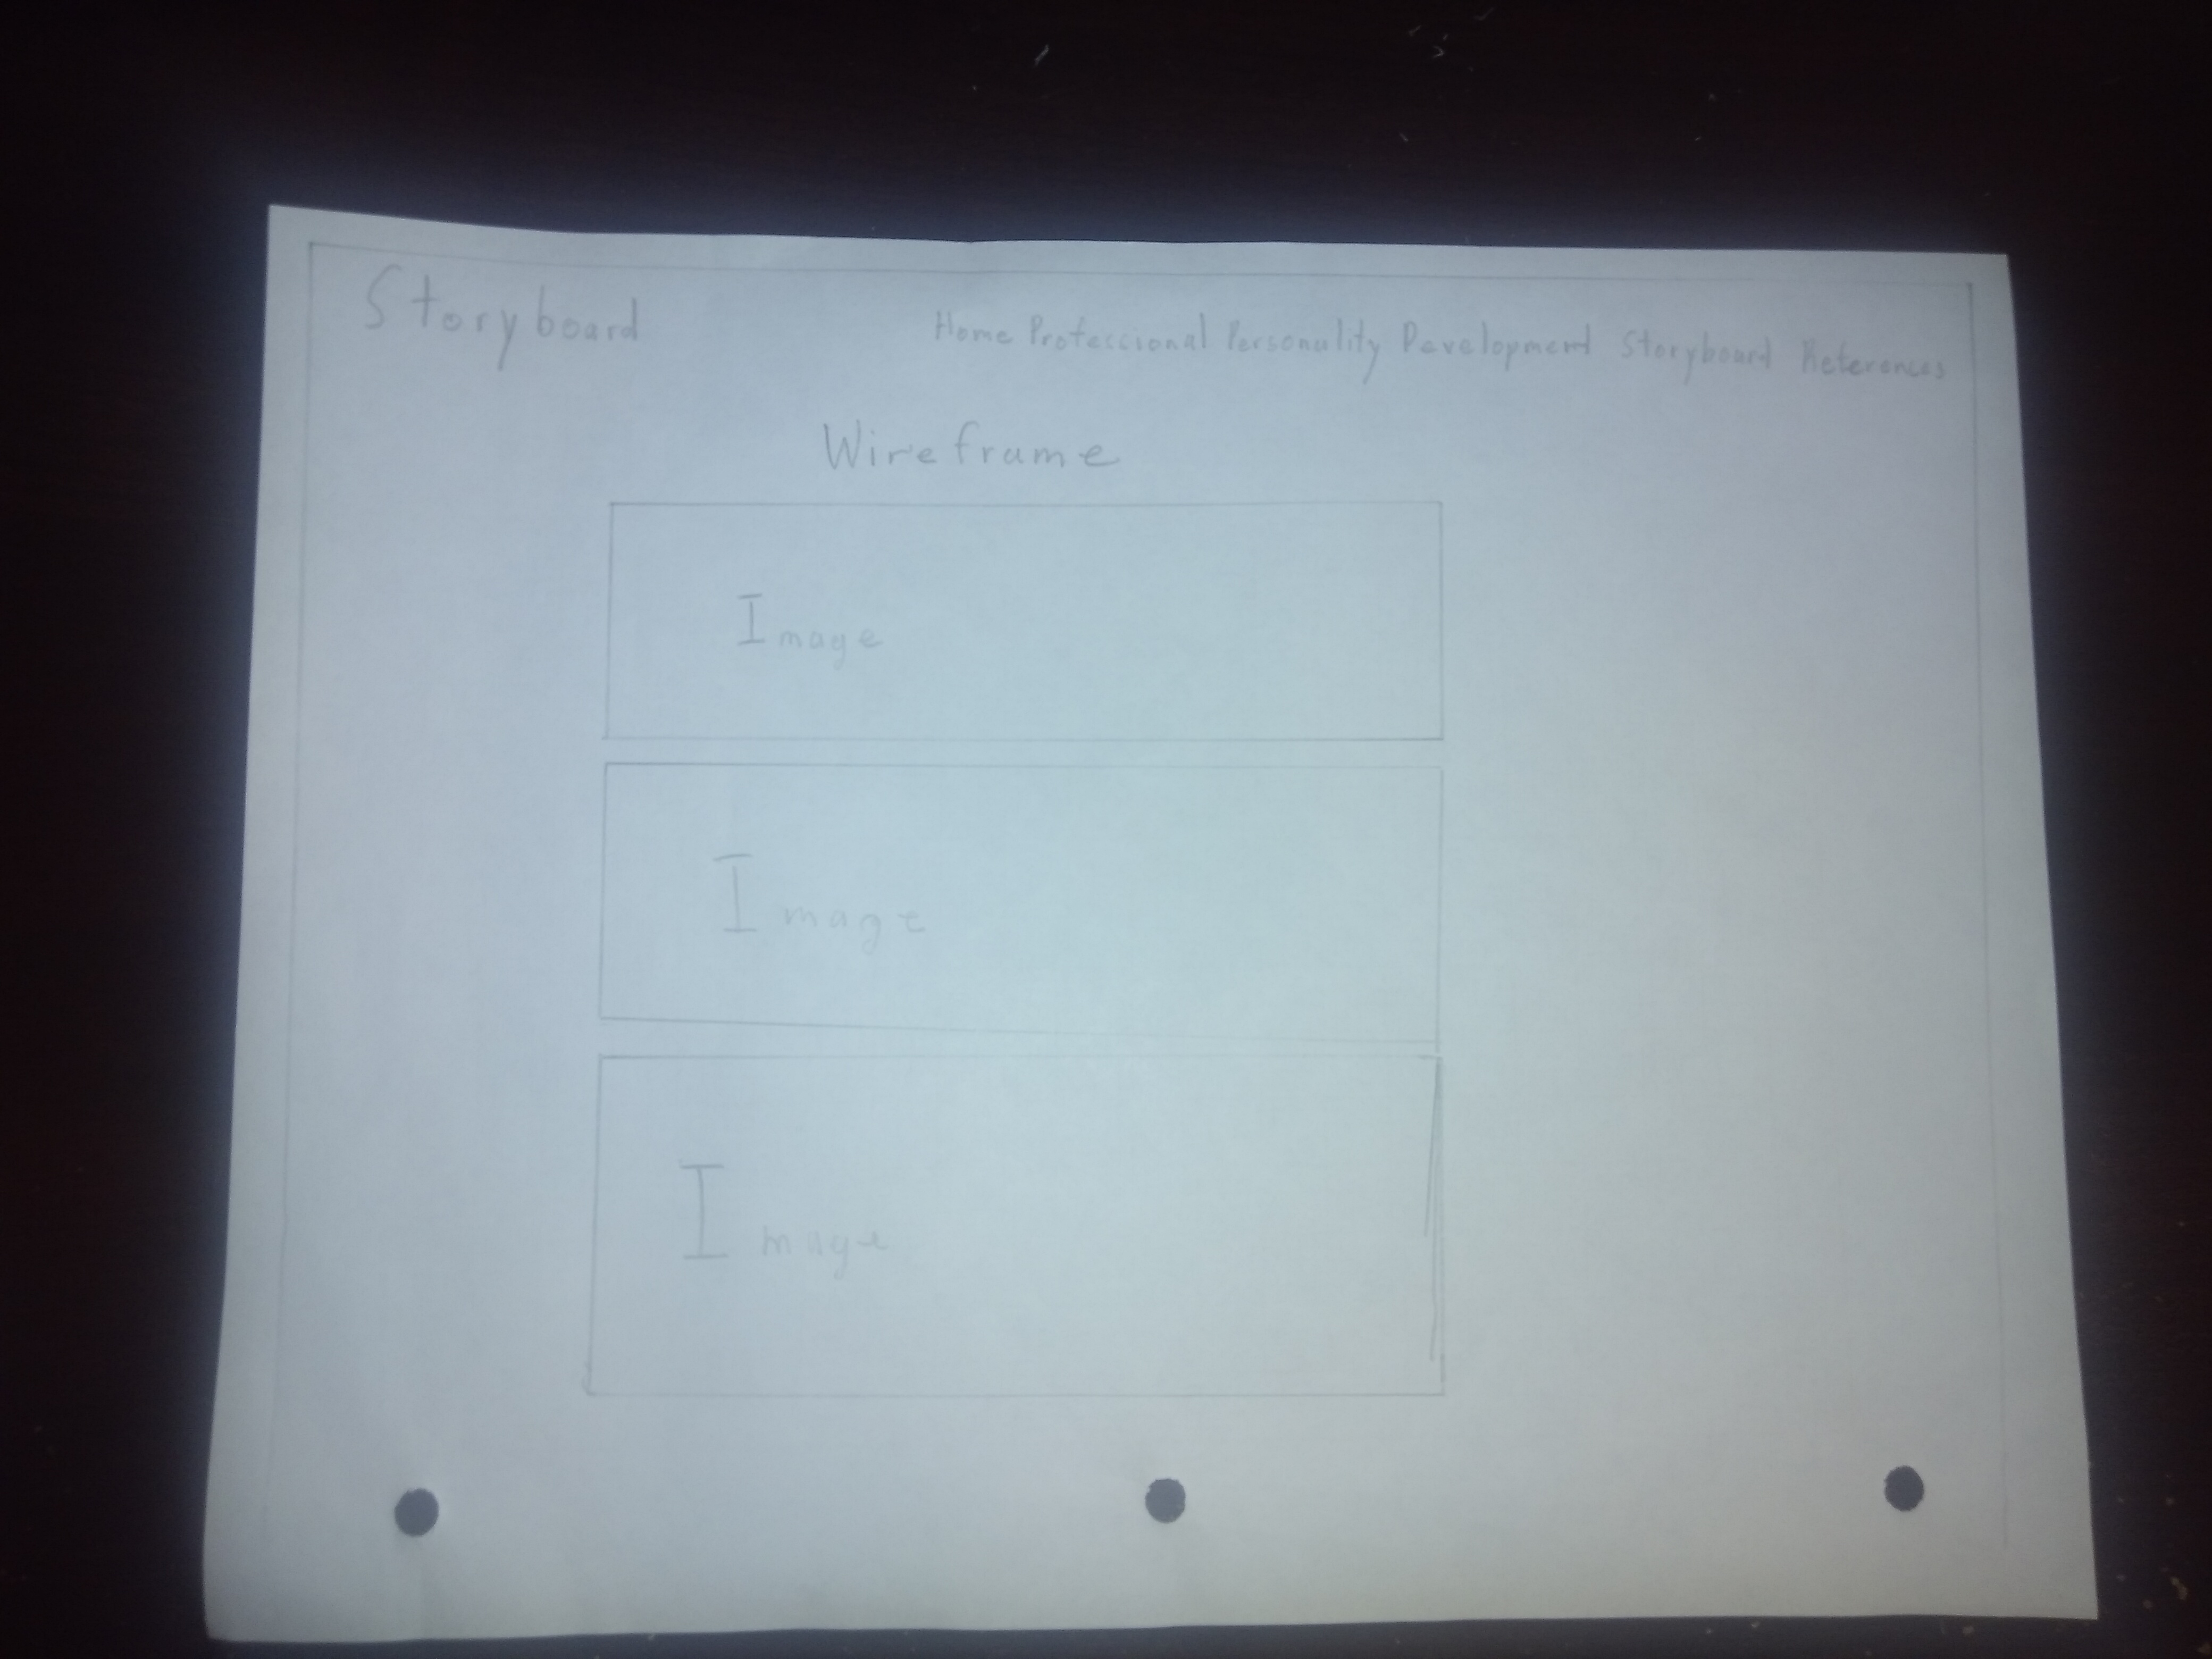 Storyboard
Home Professional Personality Development Storyboard References
Wireframe
Image
Image
Image